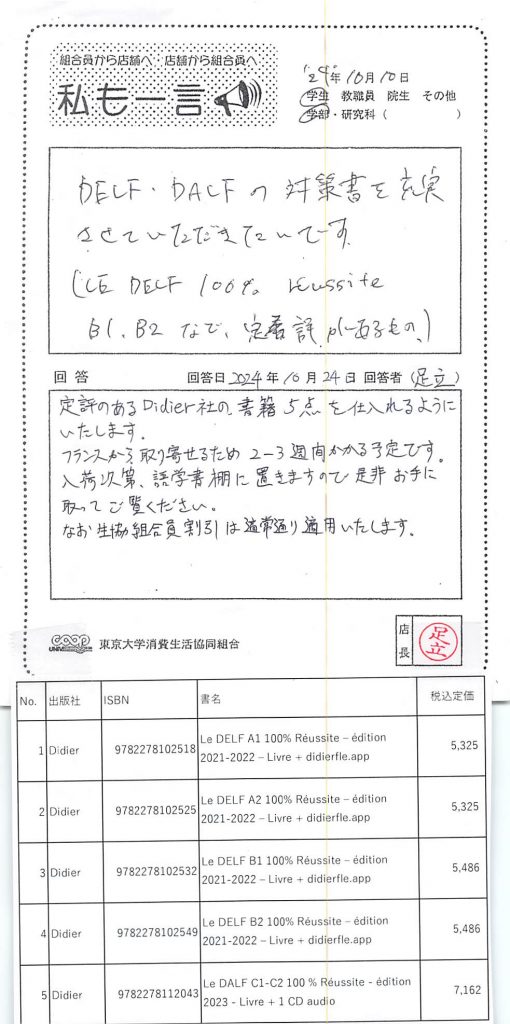 組合員から店舗へ 店舗から組合員へ
私も一言
'24年10月10日
学生 教職員 院生 その他
学部・研究科( )
DELF・DALFの対策書を充実
させていただきたいです
(LE DELF 100% réussite
B1、B2など、定番評
にあるもの。)
回答 回答日2024年10月24日 回答者(足立)
定評のあるDidier社の書籍5点を仕入れるように
いたします。
フランスから取り寄せるため2-3週間かかる予定です。
入荷次第、語学書棚に置きますので是非お手に
取ってご覧ください。
なお生協組合員割引は通常通り適用いたします。
coop 東京大学消費生活協同組合
店長 足立
No. 出版社 ISBN 書名 税込定価
1 Didier 9782278102518 Le DELF A1 100% Réussite – édition 5,325
2021-2022 – Livre + didierfle.app
2 Didier 9782278102525 Le DELF A2 100% Réussite – édition 5,325
2021-2022 – Livre + didierfle.app
3 Didier 9782278102532 Le DELF B1 100% Réussite – édition 5,486
2021-2022 – Livre + didierfle.app
4 Didier 9782278102549 Le DELF B2 100% Réussite – édition 5,486
2021-2022 – Livre + didierfle.app
5 Didier 9782278112043 Le DALF C1-C2 100 % Réussite - édition 7,162
2023 - Livre + 1 CD audio